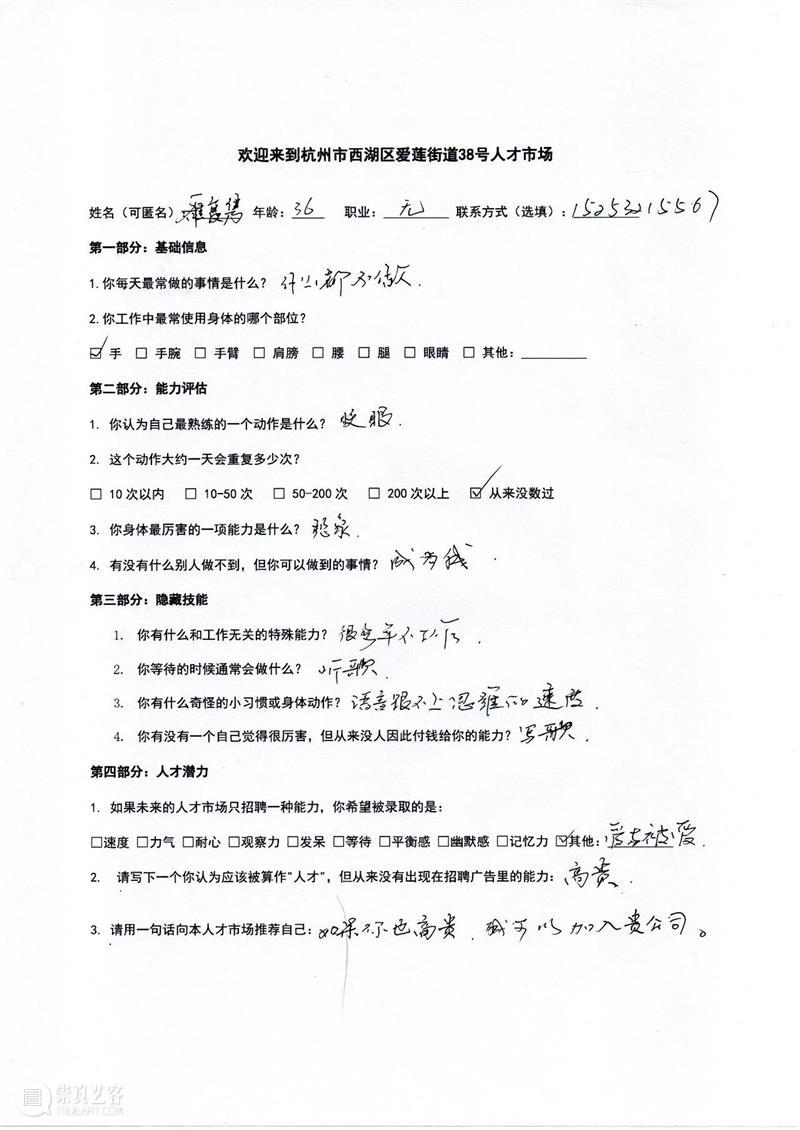 欢迎来到杭州市西湖区爱莲街道38号人才市场
姓名（可匿名）： 年龄：36 职业：无 联系方式（选填）：
第一部分：基础信息
1.你每天最常做的事情是什么？什么都不做.
2.你工作中最常使用身体的哪个部位？
☑ 手 □ 手腕 □ 手臂 □ 肩膀 □ 腰 □ 腿 □ 眼睛 □ 其他：
第二部分：能力评估
1. 你认为自己最熟练的一个动作是什么？眨眼.
2. 这个动作大约一天会重复多少次？
□ 10次以内 □ 10-50次 □ 50-200次 □ 200次以上 ☑ 从来没数过
3. 你身体最厉害的一项能力是什么？
4. 有没有什么别人做不到，但你可以做到的事情？成为我.
第三部分：隐藏技能
1. 你有什么和工作无关的特殊能力？很多年不工作.
2. 你等待的时候通常会做什么？听歌.
3. 你有什么奇怪的小习惯或身体动作？语言跟不上思维的速度.
4. 你有没有一个自己觉得很厉害，但从来没人因此付钱给你的能力？写歌.
第四部分：人才潜力
1. 如果未来的人才市场只招聘一种能力，你希望被录取的是：
□速度 □力气 □耐心 □观察力 □发呆 □等待 □平衡感 □幽默感 □记忆力 ☑其他：爱与被爱.
2. 请写下一个你认为应该被算作"人才"，但从来没有出现在招聘广告里的能力：高贵.
3. 请用一句话向本人才市场推荐自己：如果你也高贵，我可以加入贵公司。
崇真艺客
TRUEART.COM